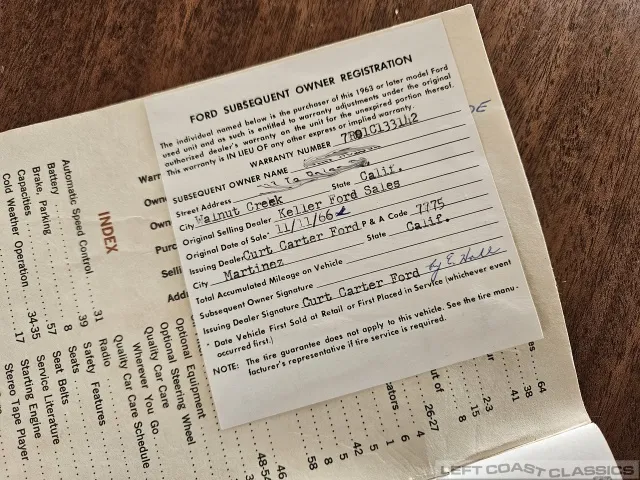 FORD SUBSEQUENT OWNER REGISTRATION
The individual named below is the purchaser of this 1963 or later model Ford
used unit and as such is entitled to warranty adjustments under the original
authorized dealer's warranty on the unit for the unexpired portion thereof.
This warranty is IN LIEU OF any other express or implied warranty.
WARRANTY NUMBER 7R01C133142
SUBSEQUENT OWNER NAME
Street Address
City Walnut Creek State Calif.
Original Selling Dealer Keller Ford Sales
Original Date of Sale* 11/17/66
Issuing Dealer Curt Carter Ford P & A Code 7775
City Martinez State Calif.
Total Accumulated Mileage on Vehicle
Subsequent Owner Signature
Issuing Dealer Signature Curt Carter Ford by E. Hall
* Date Vehicle First Sold at Retail or First Placed in Service (whichever event
occurred first.)
NOTE: The tire guarantee does not apply to this vehicle. See the tire manu-
facturer's representative if tire service is required.
INDEX
Automatic Speed Control 31
Battery 39
Brake, Parking 8
Capacities 57
Cold Weather Operation 34-35
17
Warr
Own
Own
Purc
Selli
Addi
Optional Equipment
Optional Steering Wheel
Quality Car Care
Wherever You Go
Quality Car Care Schedule
Radio
Safety Features
Seats
Seat Belts
Service Literature
Starting Engine
Stereo Tape Player
46
48-54
58
8
5
42
5
1
6
4
ators
out of
26-27
8
15
2-3
41
38
64
es
DE
LEFT COAST CLASSICS